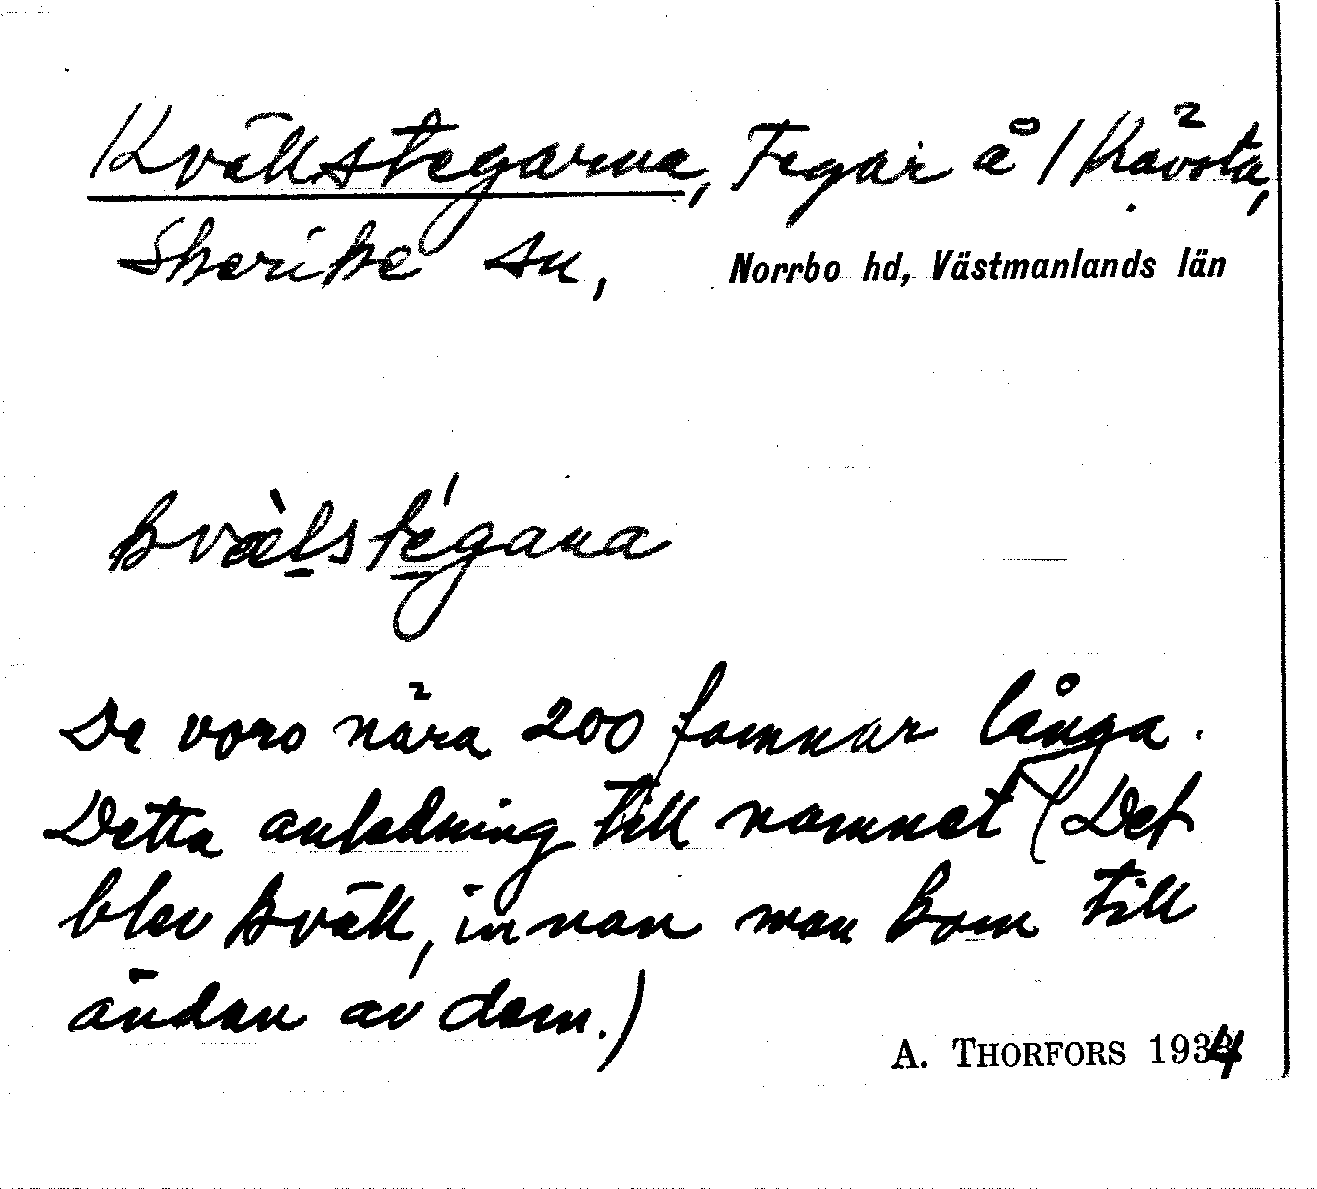 Kvällstegarna, Tegar å / Kävsta,
Skerike sn, Norrbo hd, Västmanlands län
kvæ̀lstégana
De voro nära 200 famnar långa.
Detta anledning till namnet (Det
blev kväll, innan man kom till
ändan av dem.)
A. THORFORS 1934